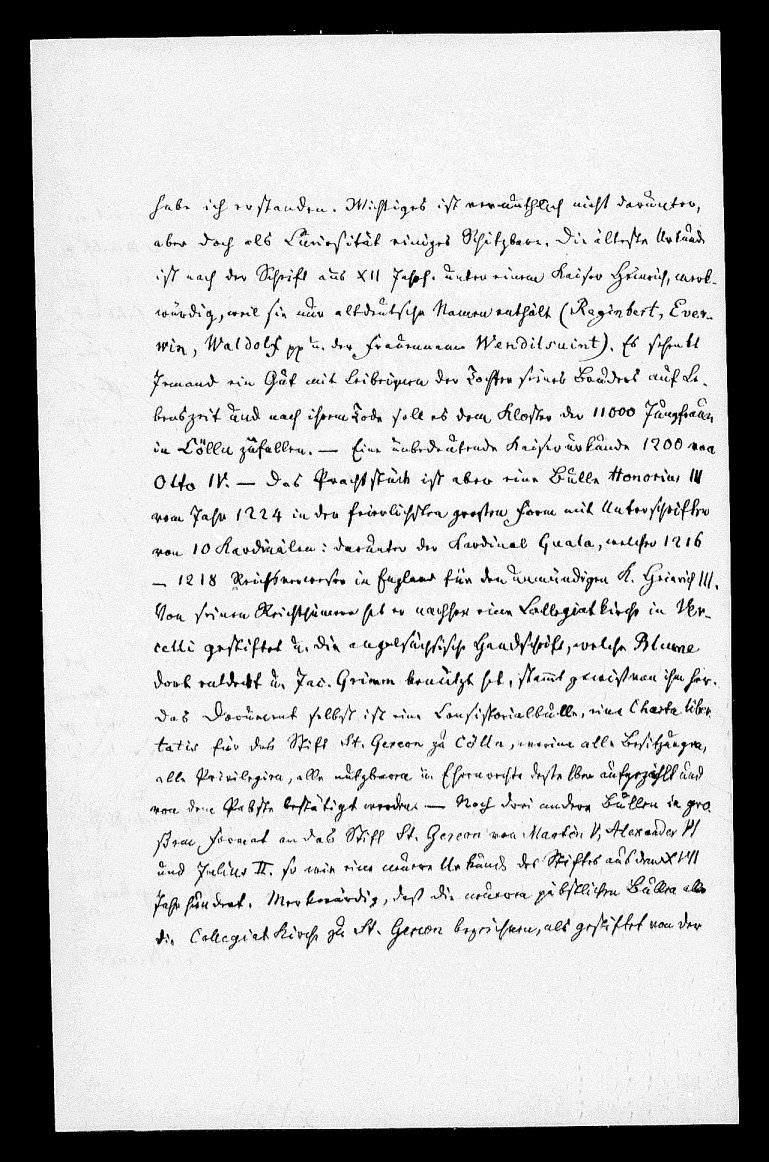 habe ich erstanden. Wichtiges ist vermuthlich nicht darunter,
aber doch als Curiosität einiges Schätzbare. Die älteste Urkunde
ist nach der Schrift aus XII Jahrh. unter einem Kaiser Heinrich, merk-
würdig, weil sie nur altdeutsche Namen enthält (Reginbert, Ever-
win, Waldolf pp u. der Frauenname Wenditsuint). Es schenkt
Jemand ein Gut mit Leibeignen der Tochter seines Bruders auf Le-
benszeit und nach ihrem Tode soll es dem Kloster der 11000 Jungfrauen
in Cölln zufallen. — Eine unbedeutende Kaiserurkunde 1200 von
Otto IV. — Das Prachtstück ist aber eine Bulle Honorius III
vom Jahr 1224 in der feierlichsten großen Form mit Unterschriften
von 10 Kardinälen: darunter der Kardinal Guala, welcher 1216
— 1218 Reichsverweser in England für den unmündigen K. Heinrich III.
Von seinen Reichthümern hat er nachher eine Collegiatkirche in Ver-
celli gestiftet u. die angelsächsische Handschrift, welche Blume
dort entdeckt u. Jac. Grimm benutzt hat, stammt gewiss von ihm her.
Das Document selbst ist eine Consistorialbulle, eine Charta liber
tatis für das Stift St. Gereon zu Cölln, worin alle Besitzungen,
alle Privilegien, alle nutzbaren u. Ehrenrechte desselben aufgezählt und
von dem Pabste bestätigt werden. — Noch drei andere Bullen in gro
ßem Format an das Stift St. Gereon von Martin V, Alexander VI
und Julius II. so wie eine neuere Urkunde des Stiftes aus dem XVII
Jahrhundert. Merkwürdig, daß die neueren päbstlichen Bullen alle
die Collegiat Kirche zu St. Gereon bezeichnen, als gestiftet von der